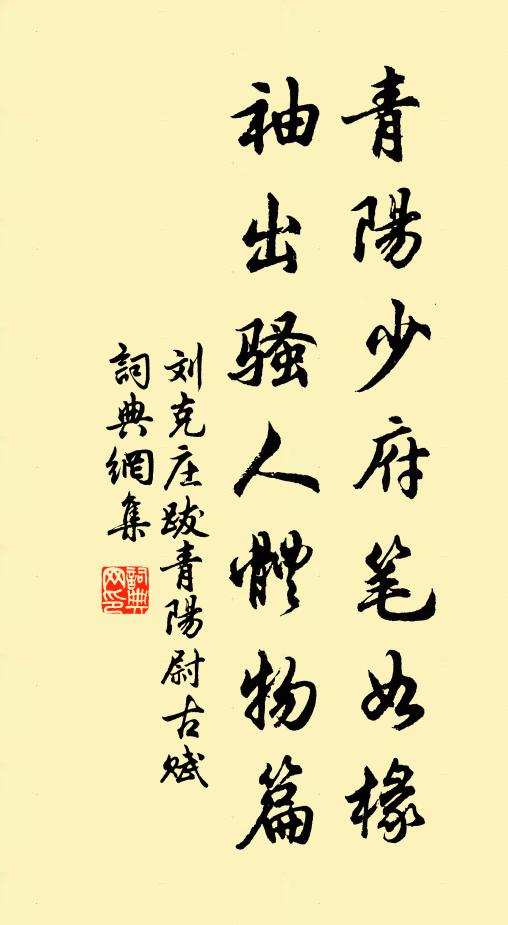 青陽少府笔如椽
袖出騷人體物篇
刘克庄跋青陽尉古赋
詞典網集
詞典网印